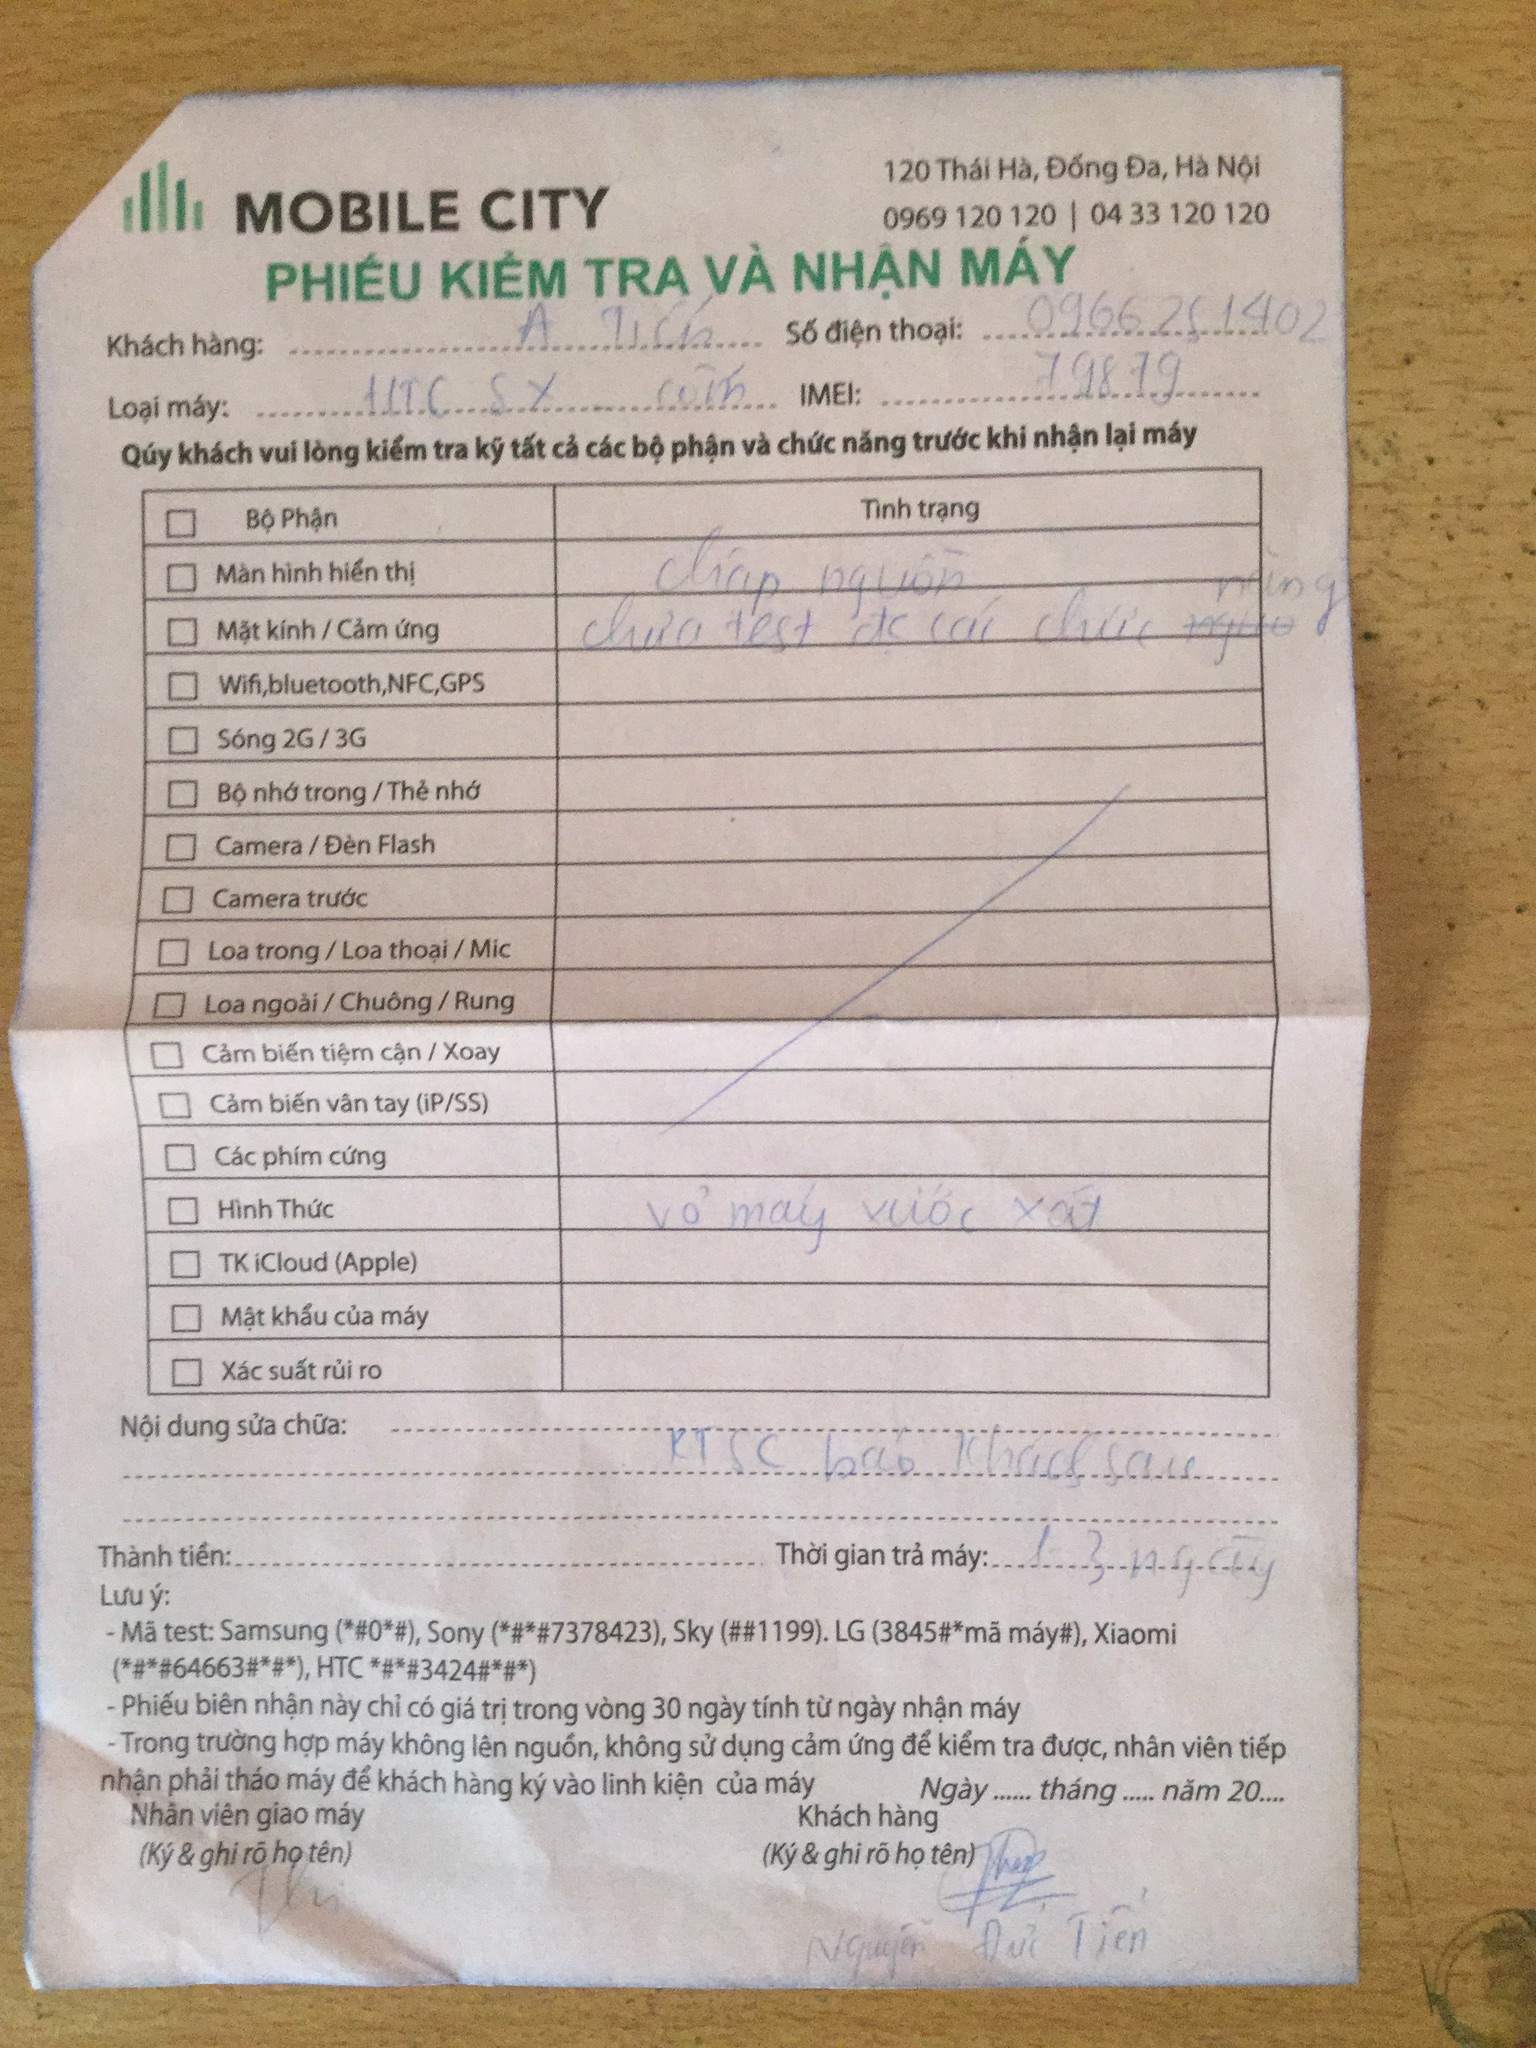 MOBILE CITY
120 Thái Hà, Đống Đa, Hà Nội
0969 120 120 | 04 33 120 120
PHIẾU KIỂM TRA VÀ NHẬN MÁY
Khách hàng: A Tiến Số điện thoại: 0966251402
Loại máy: HTC SX IMEI: 79879
Qúy khách vui lòng kiểm tra kỹ tất cả các bộ phận và chức năng trước khi nhận lại máy
Bộ Phận Tình trạng
Màn hình hiển thị chập nguồn
Mặt kính / Cảm ứng chưa test đc các chức năng
Wifi,bluetooth,NFC,GPS
Sóng 2G / 3G
Bộ nhớ trong / Thẻ nhớ
Camera / Đèn Flash
Camera trước
Loa trong / Loa thoại / Mic
Loa ngoài / Chuông / Rung
Cảm biến tiệm cận / Xoay
Cảm biến vân tay (iP/SS)
Các phím cứng
Hình Thức vỏ máy xước xát
TK iCloud (Apple)
Mật khẩu của máy
Xác suất rủi ro
Nội dung sửa chữa:
KTSC báo khách sau
Thành tiền: Thời gian trả máy: 1-3 ngày
Lưu ý:
- Mã test: Samsung (*#0*#), Sony (*#*#7378423), Sky (##1199). LG (3845#*mã máy#), Xiaomi
(*#*#64663#*#*), HTC *#*#3424#*#*)
- Phiếu biên nhận này chỉ có giá trị trong vòng 30 ngày tính từ ngày nhận máy
- Trong trường hợp máy không lên nguồn, không sử dụng cảm ứng để kiểm tra được, nhân viên tiếp
nhận phải tháo máy để khách hàng ký vào linh kiện của máy Ngày ...... tháng ..... năm 20....
Nhân viên giao máy Khách hàng
(Ký & ghi rõ họ tên) (Ký & ghi rõ họ tên)
Thi
Nguyễn Đức Tiến